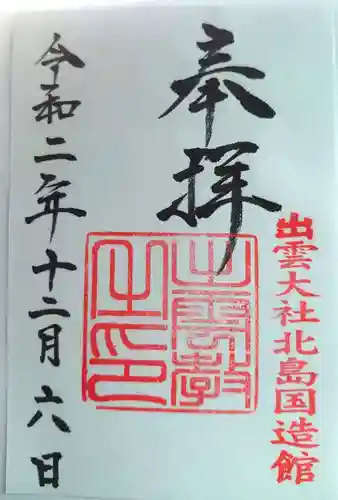 出雲大社北島国造館
奉拝
出雲教之印
令和二年十二月六日